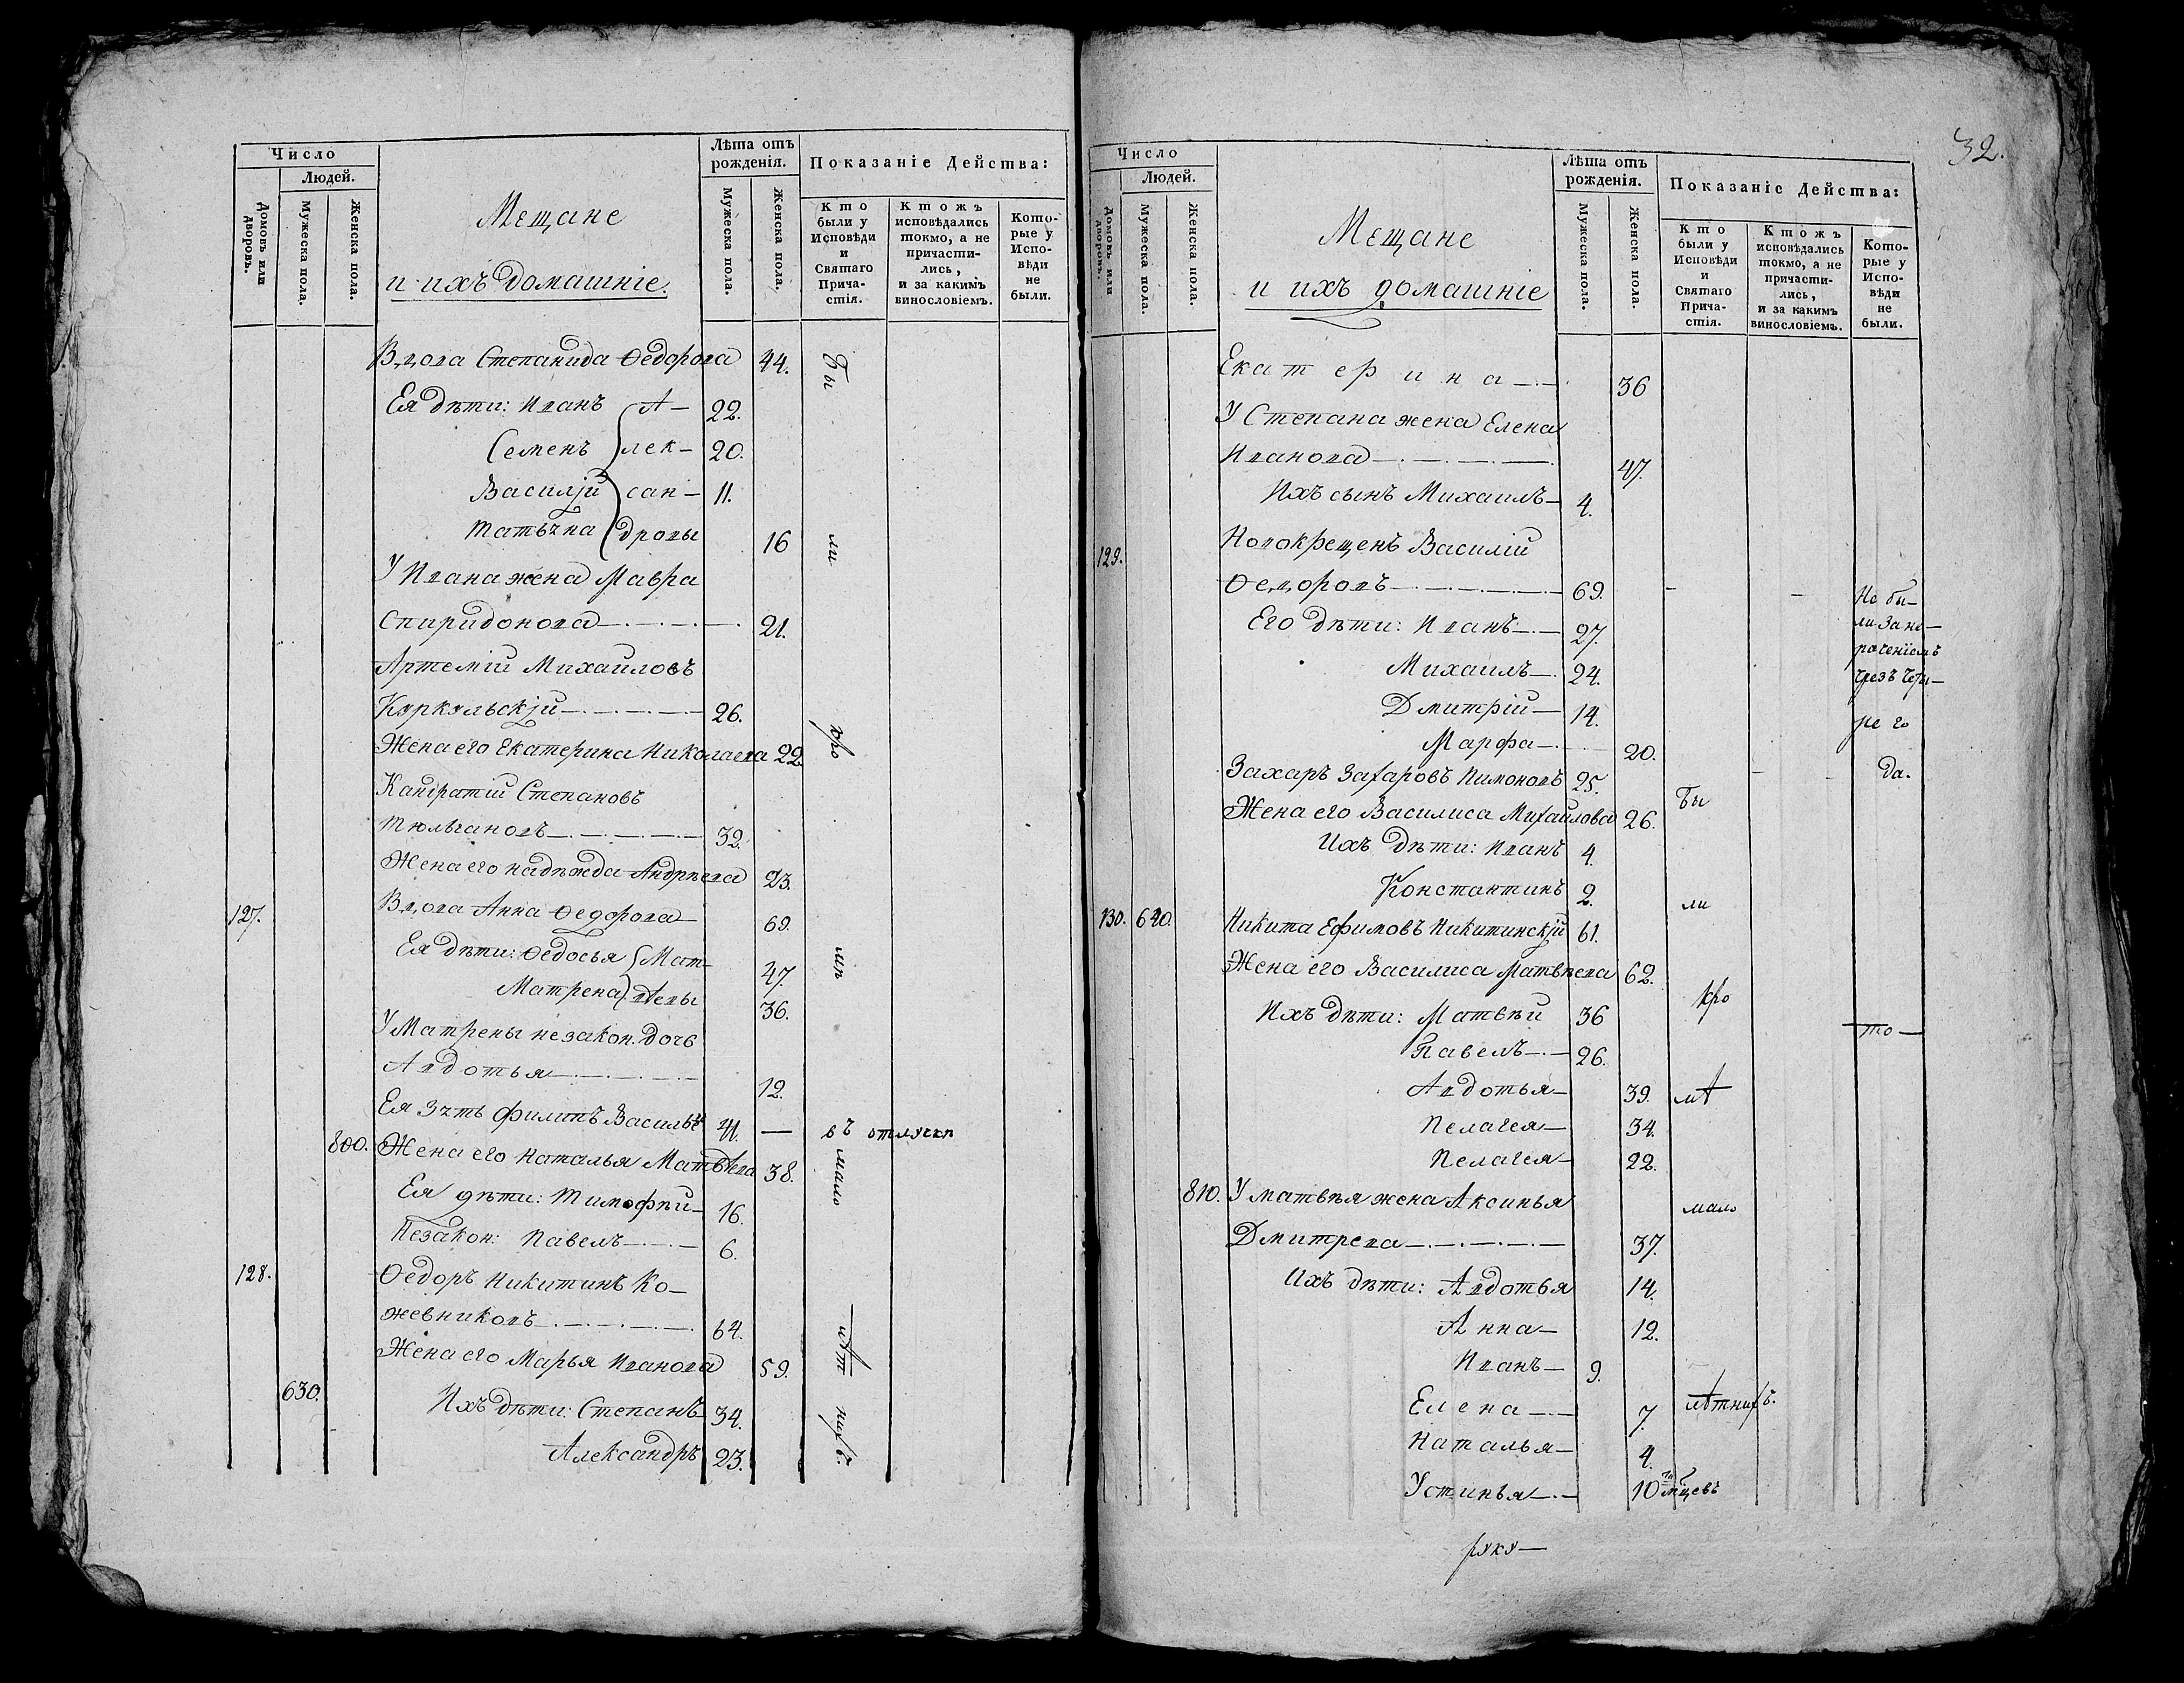 Число
Людей.
Домовъ или дворовъ.
Мужеска пола.
Женска пола.
Мещане
и ихъ домашніе.
Лѣта отъ рожденія.
Мужеска пола.
Женска пола.
Показаніе Действа:
Кто были у Исповѣди и Святаго Прича-стія.
Ктожъ исповѣдались токмо, а не причасти-лись, и за какимъ винословіемъ.
Кото-рые у Испо-вѣди не были.
Вдова Степанида Ѳедорова 44. Бы
Ея дѣти: Иванъ А- 22.
Семенъ лек- 20.
Василій сан- 11.
Татьяна дровы 16 ли
У Ивана жена Мавра
Спиридонова 21.
Артемій Михайловъ
Куркульскій 26.
Жена его Екатерина Николаева 22. кро
Кандратій Степановъ
Тюльгановъ 32.
Жена его надѣжда Андрѣева 23.
127. Вдова Анна Ѳедорова 69.
Ея дѣти: Ѳедосья Мат- 47.
Матрена вѣевы 36.
У Матрены незакон. дочь
Авдотья 12.
Ея Зять Филипъ Васильевъ 41. — въ отлучкѣ
800. Жена его Наталья Матвѣева 38. мало
Ея дѣти: Тимофѣй 16.
Незакон: Павелъ 6.
128. Ѳедоръ Никитинъ Ко-
жевниковъ 64.
Жена его Марья Иванова 59. лѣт
630. Ихъ дѣти: Степанъ 34.
Александръ 23. нихъ.
32.
Число
Людей.
Домовъ или дворовъ.
Мужеска пола.
Женска пола.
Мещане
и ихъ домашніе
Лѣта отъ рожденія.
Мужеска пола.
Женска пола.
Показаніе Действа:
Кто были у Исповѣди и Святаго Прича-стія.
Ктожъ исповѣдались токмо, а не причасти-лись, и за какимъ винословіемъ.
Кото-рые у Испо-вѣди не были.
Екатерина 36
У Степана жена Елена
Иванова 47.
Ихъ сынъ Михаилъ 4.
129. Новокрещенъ Василій
Ѳедоровъ 69. - - Не бы-
ли за не-
Его дѣти: Иванъ 27.
рачениемъ
Михаилъ 24. чрезъ
Дмитрій 14.
Марфа 20.
да.
Захаръ Захаровъ Пимоновъ 25.
Жена его Василиса Михайлова 26. Бы
Ихъ дѣти: Иванъ 4.
Константинъ 2. ли
130. 640. Никита Ефимовъ Никитинскій 61.
Жена его Василиса Матвѣева 62.
кро
Ихъ дѣти: Матвѣй 36 то
Павелъ 26.
Авдотья 39. мѣ
Пелагея 34.
Пелагея 22.
810. У матвѣя жена Аксинья мало
Дмитрева 37.
Ихъ дѣти: Авдотья 14.
Анна 12.
Иванъ 9.
Елена 7. лѣтнихъ.
Наталья 4.
Устинья 10ти мѣсцевъ
руку